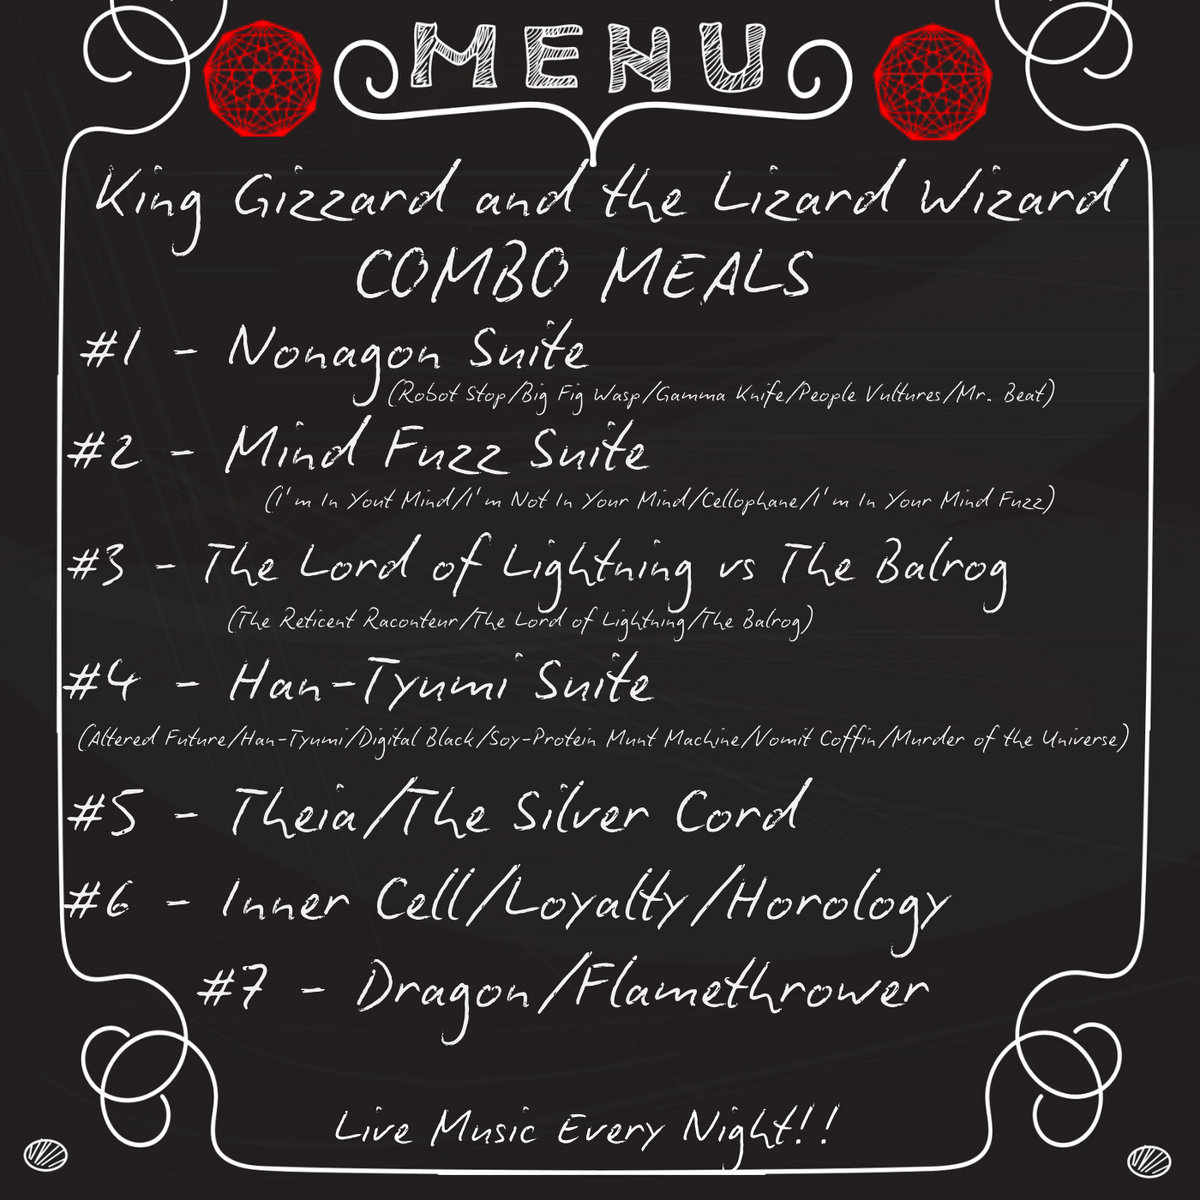 MENU
King Gizzard and the Lizard Wizard
COMBO MEALS
#1 - Nonagon Suite
(Robot Stop/Big Fig Wasp/Gamma Knife/People Vultures/Mr. Beat)
#2 - Mind Fuzz Suite
(I'm In Yout Mind/I'm Not In Your Mind/Cellophane/I'm In Your Mind Fuzz)
#3 - The Lord of Lightning vs The Balrog
(The Reticent Raconteur/The Lord of Lightning/The Balrog)
#4 - Han-Tyumi Suite
(Altered Future/Han-Tyumi/Digital Black/Soy-Protein Munt Machine/Vomit Coffin/Murder of the Universe)
#5 - Theia/The Silver Cord
#6 - Inner Cell/Loyalty/Horology
#7 - Dragon/Flamethrower
Live Music Every Night!!